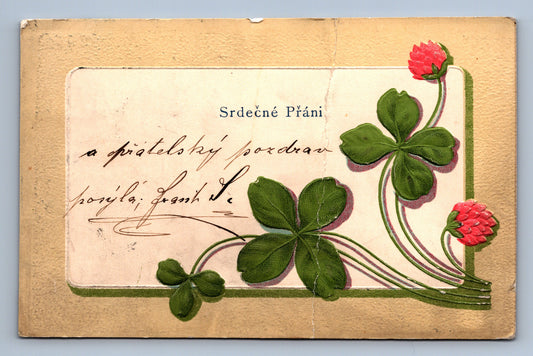 Srdečné Přáni
a přatelský pozdrav
posýlá, Frant S.